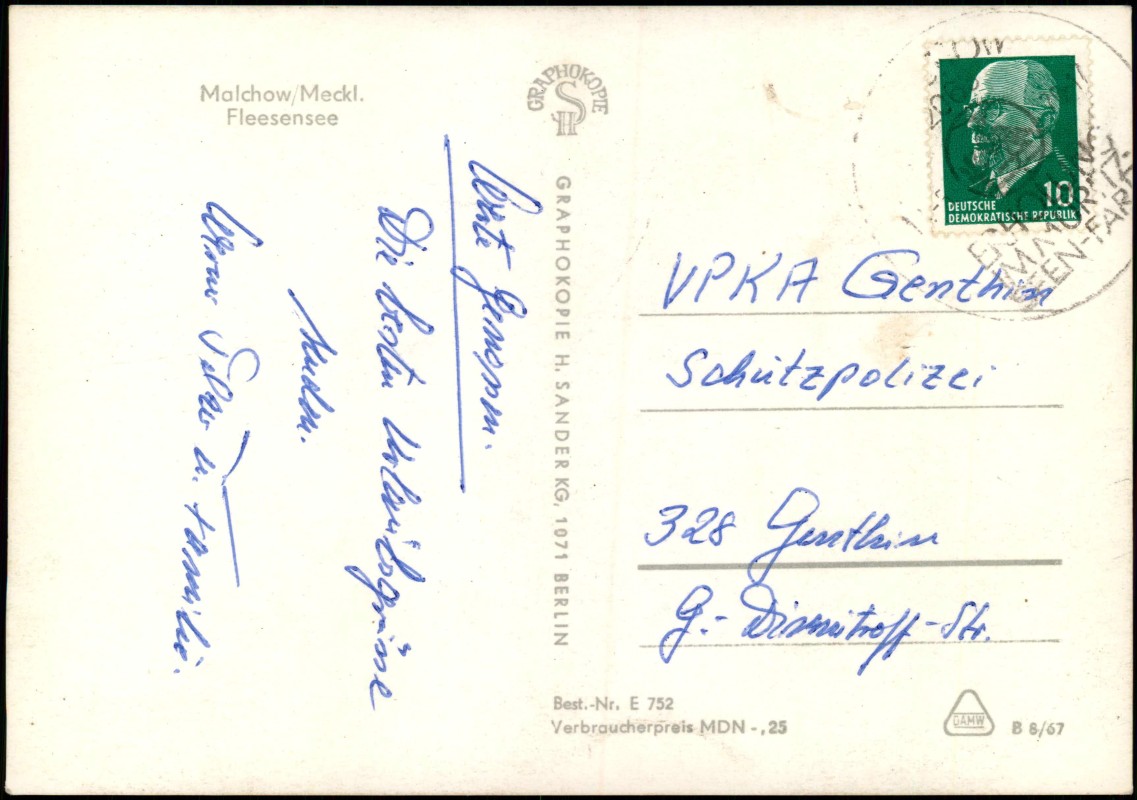 Malchow/Meckl.
Fleesensee
GRAPHOKOPIE
H S
Werte Genossen.
Die besten Urlaubsgrüsse
senden.
u. Familie.
GRAPHOKOPIE H. SANDER KG, 1071 BERLIN
10
DEUTSCHE
DEMOKRATISCHE REPUBLIK
VPKA Genthin
Schutzpolizei
328 Genthin
G.-Dimitroff-Str.
Best.-Nr. E 752
Verbraucherpreis MDN -,25
DAMW
B 8/67